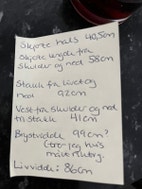 Skjorte hals 40,5cm
Skjorte lengde fra
skulder og ned 58cm
Stakk fra livet og
ned 92cm
Vest fra skulder og ned
til stakk 41cm
Brystvidde 99cm?
jeg
Livvidde: 86cm